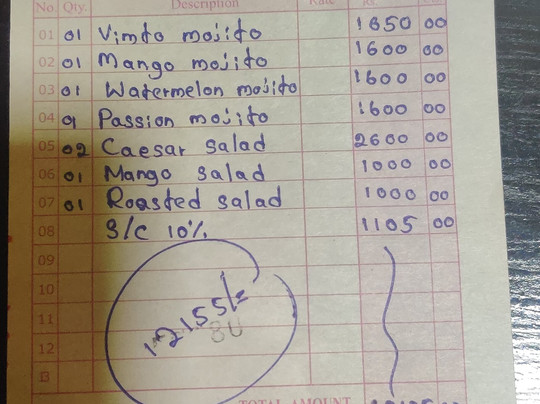 No. Qty. Description Rate
01 01 Vimto mojito 1650 00
02 01 Mango mojito 1600 00
03 01 Watermelon mojito 1600 00
04 01 Passion mojito 1600 00
05 02 Caesar salad 2600 00
06 01 Mango salad 1000 00
07 01 Roasted salad 1000 00
08 S/C 10% 1105 00
09
10
11
12
12155/=
TOTAL AMOUNT